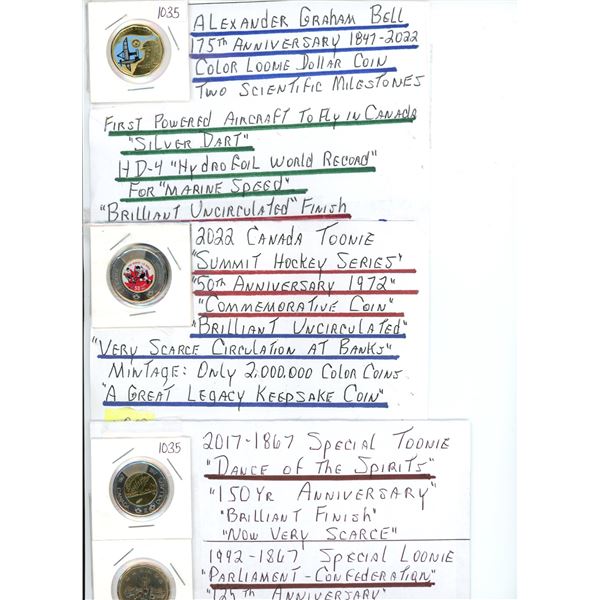 1035
ALEXANDER GRAHAM BELL
175TH ANNIVERSARY 1847-2022
COLOR LOONIE DOLLAR COIN
TWO SCIENTIFIC MILESTONES
FIRST POWERED AIRCRAFT TO FLY IN CANADA
"SILVER DART"
HD-4 "HYDROFOIL WORLD RECORD"
FOR "MARINE SPEED"
"BRILLIANT UNCIRCULATED" FINISH
2022 CANADA TOONIE
"SUMMIT HOCKEY SERIES"
"50TH ANNIVERSARY 1972"
"COMMEMORATIVE COIN"
"BRILLIANT UNCIRCULATED"
"VERY SCARCE CIRCULATION AT BANKS"
MINTAGE: ONLY 2,000,000 COLOR COINS
"A GREAT LEGACY KEEPSAKE COIN"
1035
2017-1867 SPECIAL TOONIE
"DANCE OF THE SPIRITS"
"150 YR ANNIVERSARY"
"BRILLIANT FINISH"
"NOW VERY SCARCE"
1992-1867 SPECIAL LOONIE
"PARLIAMENT-CONFEDERATION"
"125TH ANNIVERSARY"